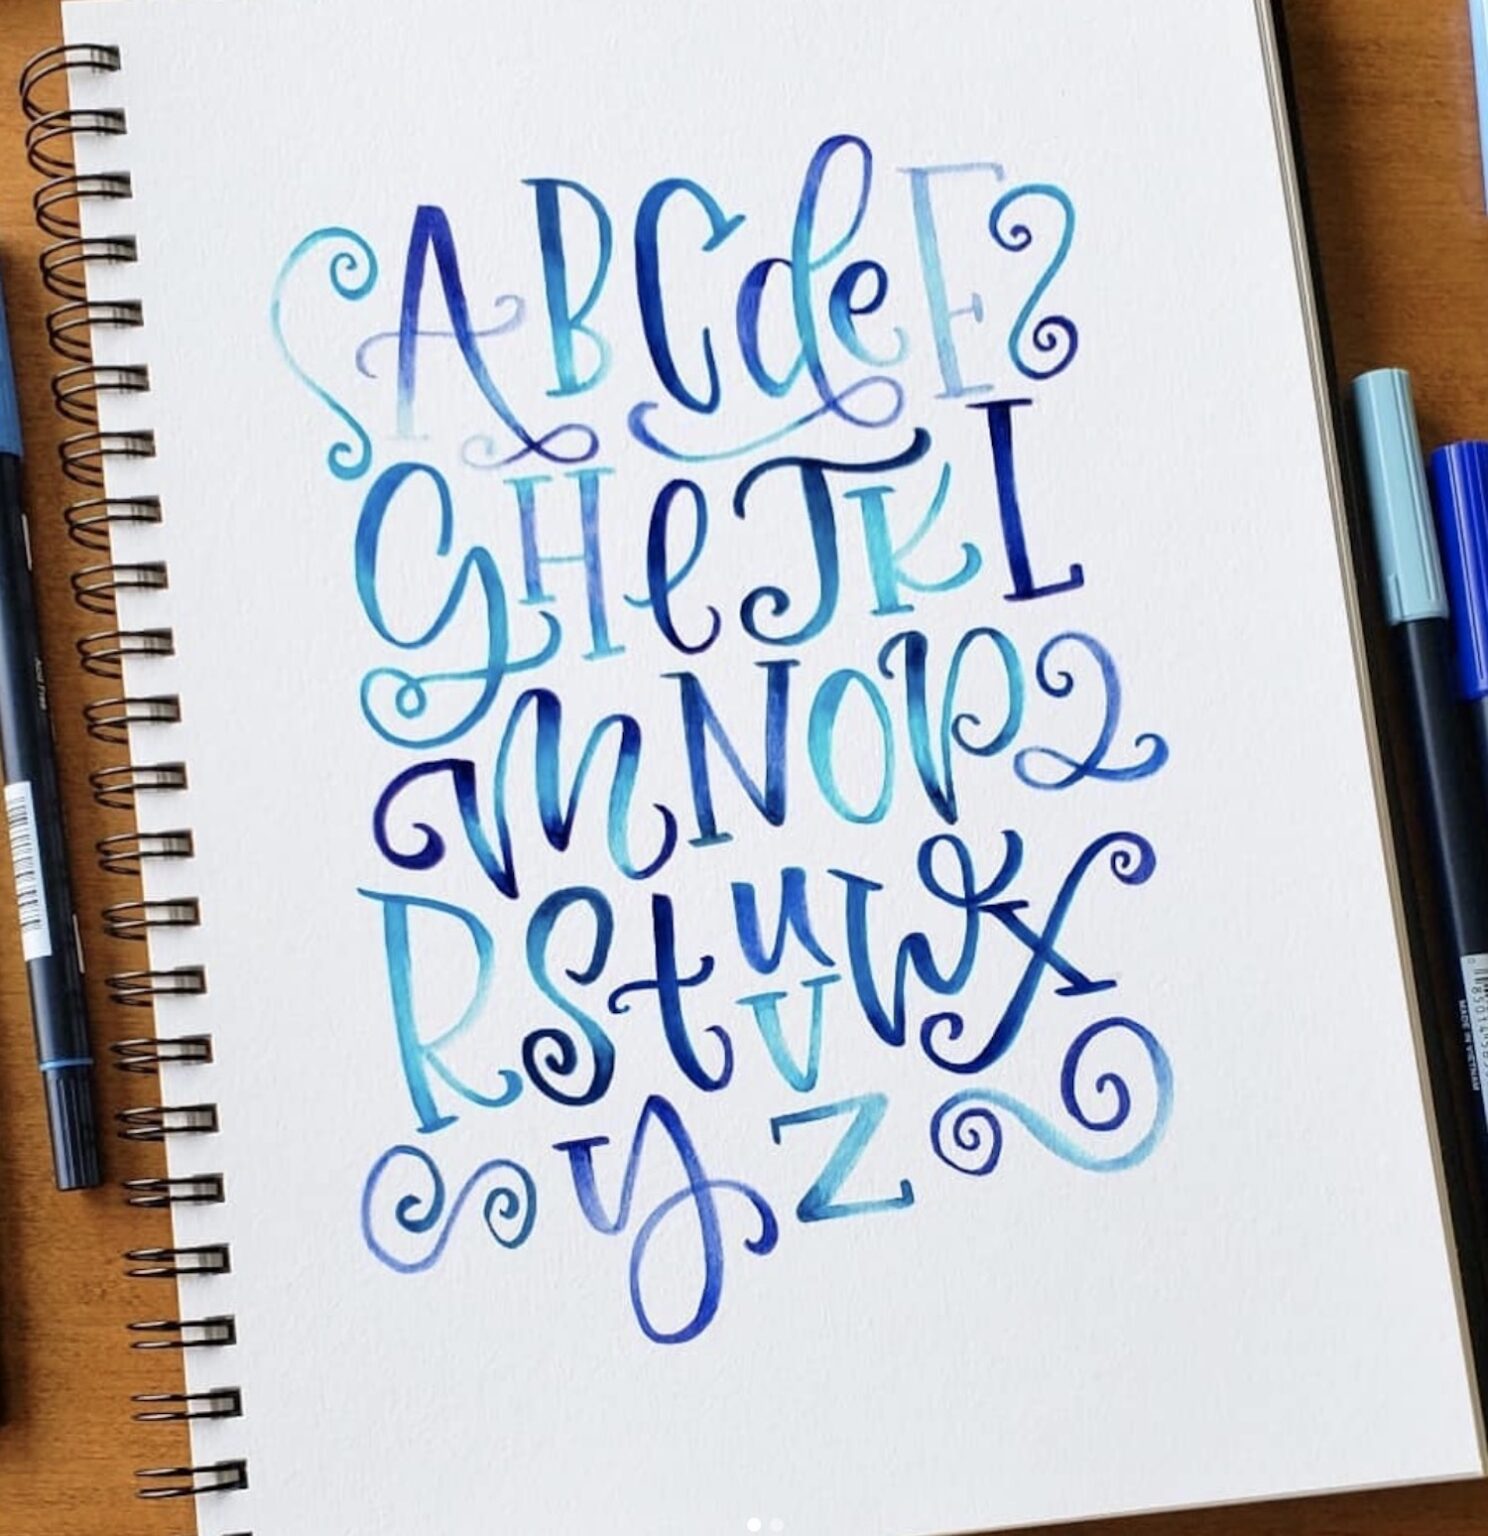 ABCdeF
GHIJKL
mNOPQ
RStuvwx
yZ
MADE IN VIETNAM